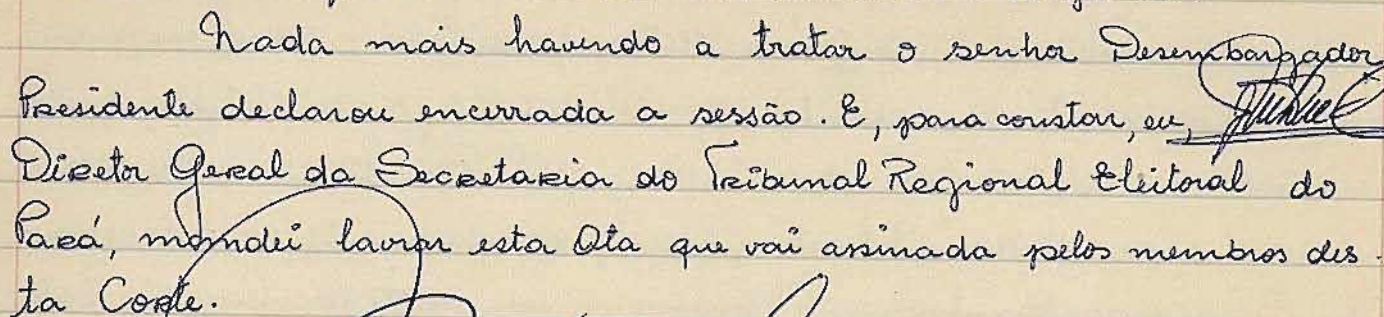 Nada mais havendo a tratar o senhor Desembargador
Presidente declarou encerrada a sessão. E, para constar, eu,
Diretor Geral da Secretaria do Tribunal Regional Eleitoral do
Pará, mandei lavrar esta Ata que vai assinada pelos membros des-
ta Corte.